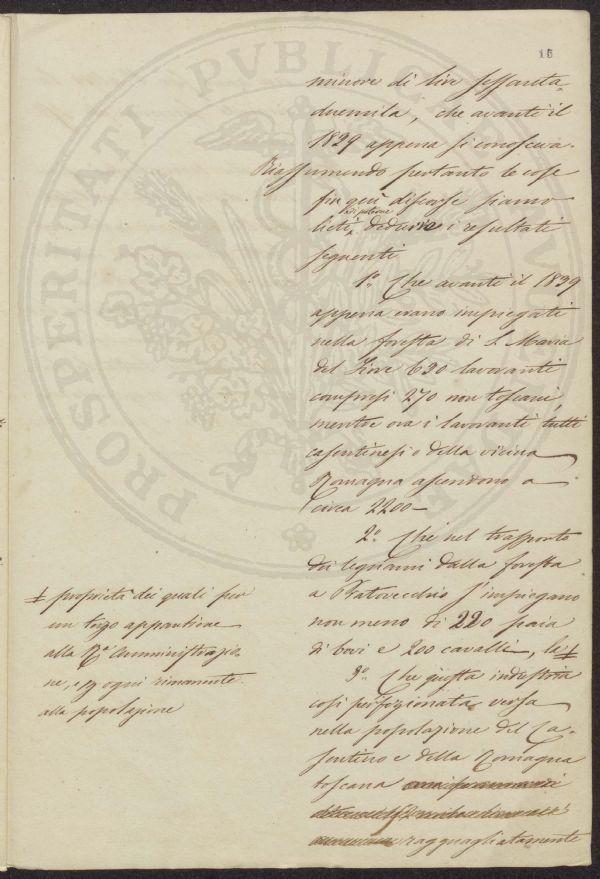 15
minore di lire sessanta-
duemila, che avanti il
1829 appena si conosceva.
Riassumendo pertanto le cose
fin quì discorse siamo
lieti di potere dedurre i resultati
seguenti
1º Che avanti il 1839
appena erano impiegati
nella foresta di S. Maria
del Fiore 630 lavoranti
compresi 270 non toscani,
mentre ora i lavoranti tutti
casentinesi o della vicina
Romagna ascendono a
circa 2200 –
2º Che nel trasporto
dei legnami dalla foresta
a Pratovecchio s'impiegano
non meno di 220 paia
di bovi e 200 cavalli, le
3º Che questa industria
così perfezionata versa
nella popolazione del Ca-
sentino e della Romagna
toscana
ragguagliatamente
proprietà dei quali per
un terzo appartiene
alla Rª Amministrazio
ne, e ogni rimanente
alla popolazione
PROSPERITATI PVBLICAE